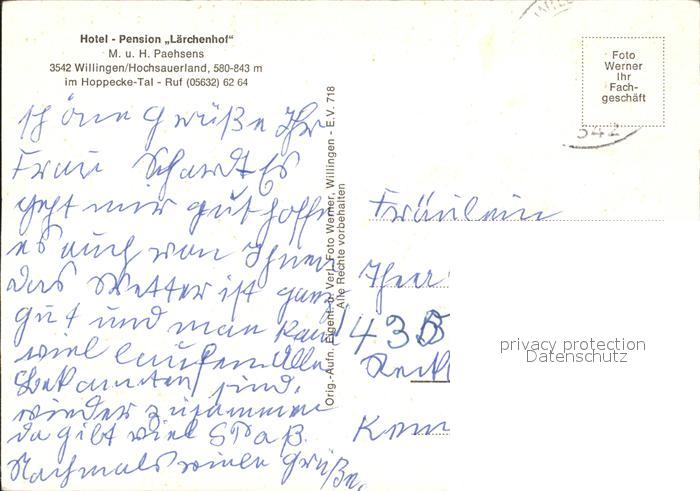 Hotel - Pension „Lärchenhof“
M. u. H. Paehsens
3542 Willingen/Hochsauerland, 580-843 m
im Hoppecke-Tal - Ruf (05632) 62 64
Foto
Werner
Ihr
Fach-
geschäft
542
Schöne Grüße Ihr
Frau Schardt Es
geht mir gut hoffe
es auch von Ihnen
das Wetter ist ganz
gut und man kann
viel laufen Alle
Bekannten sind,
wieder zusammen
da gibt viel Spaß.
Nochmals viele Grüße.
Orig.-Aufn. Eigent. u. Verl. Foto Werner, Willingen - E.V. 718
Alle Rechte vorbehalten
Fräulein
435
privacy protection
Datenschutz